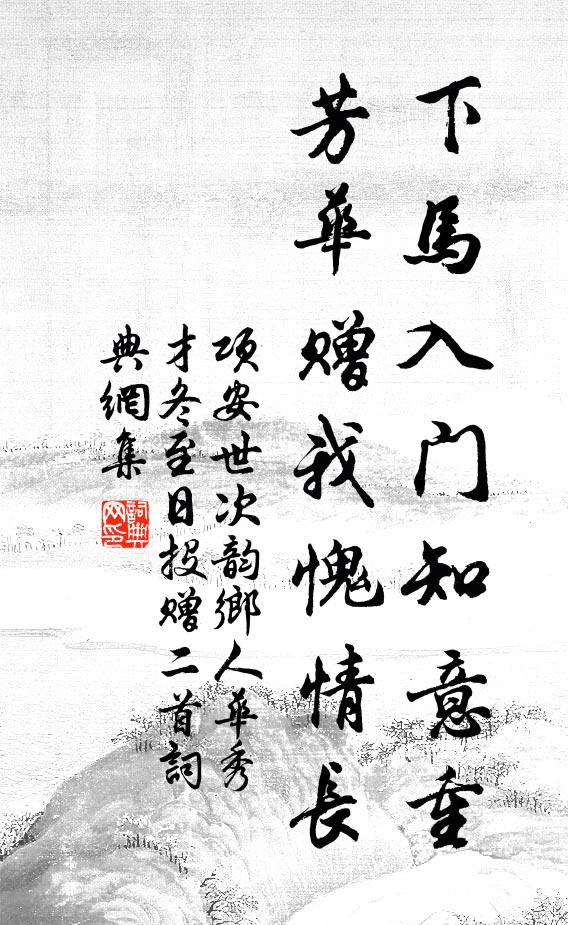 下馬入门知意重
芳華赠我愧情長
项安世次韵鄉人華秀
才冬至日投赠二首詞
典網集
詞典
网印